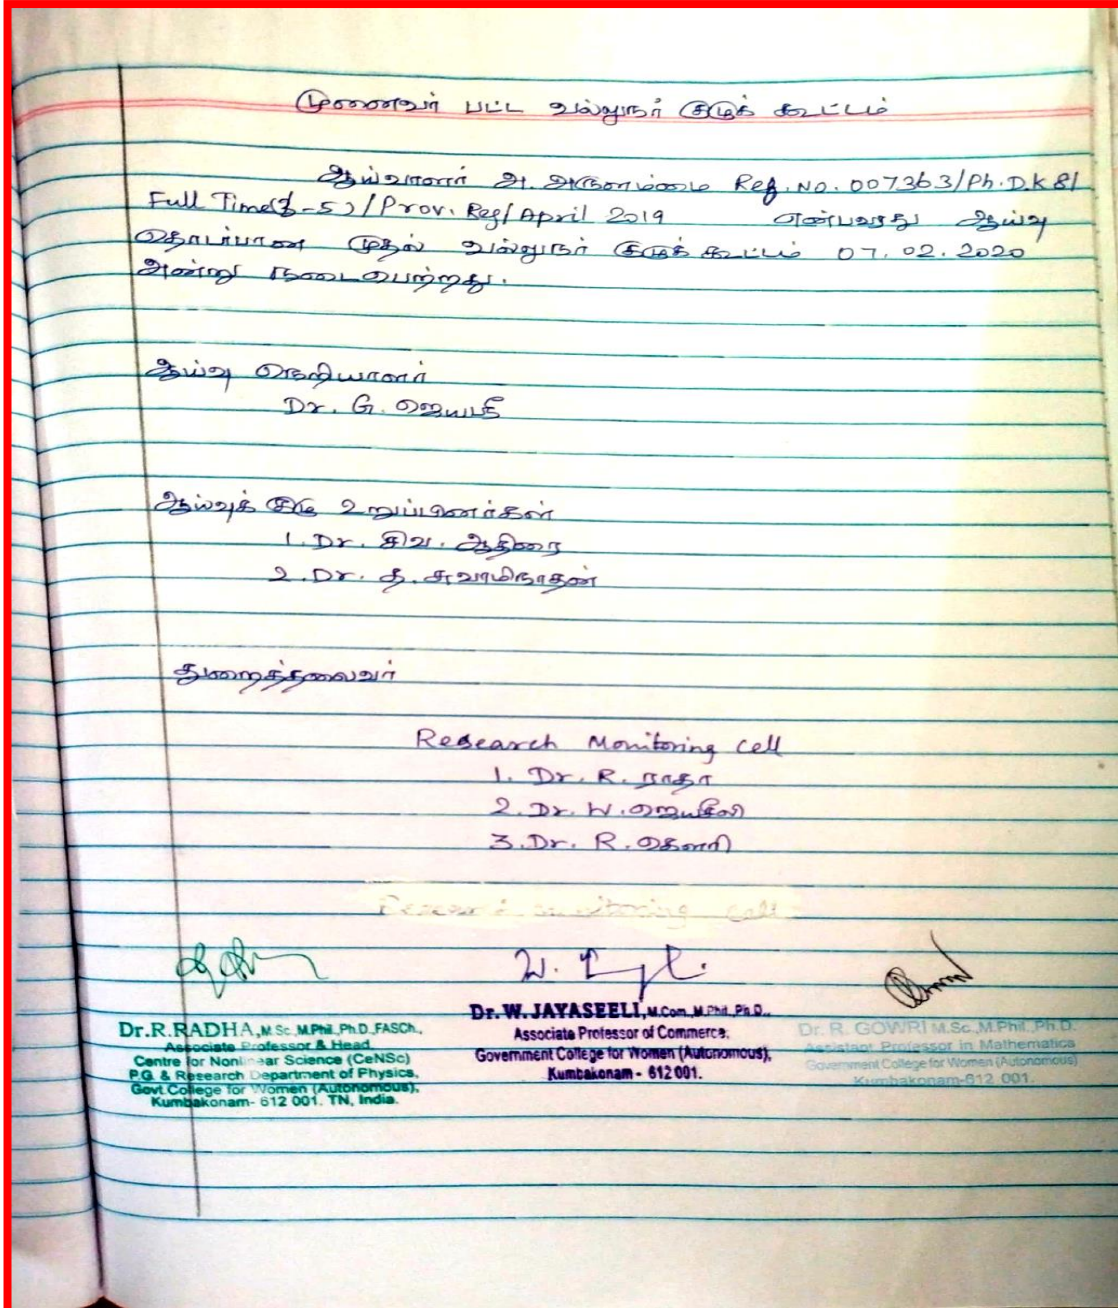 முனைவர் பட்ட வல்லுநர் குழுக் கூட்டம்
ஆய்வாளர் அ. அருளம்மை Ref. No. 007363/Ph.D.K 8/
Full Time(த-5)/Prov. Reg/April 2019 என்பவரது ஆய்வு
தொடர்பான முதல் வல்லுநர் குழுக் கூட்டம் 07.02.2020
அன்று நடைபெற்றது.
ஆய்வு நெறியாளர்
Dr. G. ஜெயபதி
ஆய்வுக் குழு உறுப்பினர்கள்
1. Dr. சிவ. ஆதிரை
2. Dr. த. சுவாமிநாதன்
துறைத்தலைவர்
Research Monitoring Cell
1. Dr. R. ராதா
2. Dr. W. ஜெயசீலி
3. Dr. R. கௌரி
Research monitoring Cell
Dr. R. RADHA, M.Sc. M.Phil., Ph.D., FASCh.,
Associate Professor & Head
Centre for Nonlinear Science (CeNSc)
P.G. & Research Department of Physics,
Govt. College for Women (Autonomous),
Kumbakonam- 612 001. TN, India.
Dr. W. JAYASEELI, M.Com., M.Phil., Ph.D.,
Associate Professor of Commerce,
Government College for Women (Autonomous),
Kumbakonam - 612 001.
Dr. R. GOWRI M.Sc., M.Phil., Ph.D.
Assistant Professor in Mathematics
Government College for Women (Autonomous)
Kumbakonam-612 001.